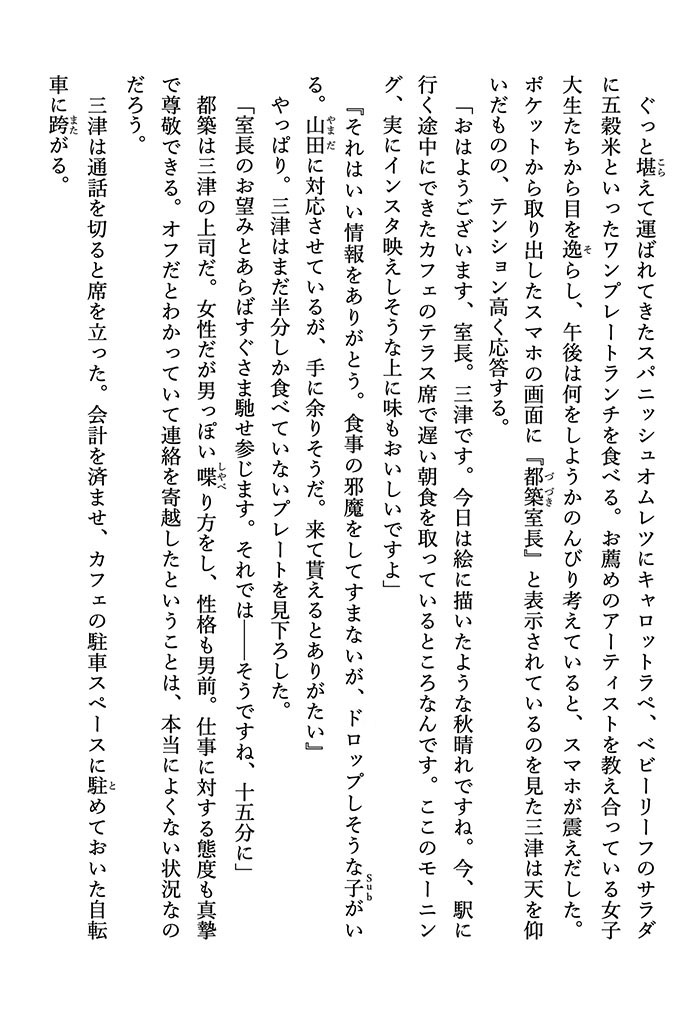 ぐっと堪えて運ばれてきたスパニッシュオムレツにキャロットラペ、ベビーリーフのサラダ
に五穀米といったワンプレートランチを食べる。お薦めのアーティストを教え合っている女子
大生たちから目を逸らし、午後は何をしようかのんびり考えていると、スマホが震えだした。
ポケットから取り出したスマホの画面に『都築室長』と表示されているのを見た三津は天を仰
いだものの、テンション高く応答する。
「おはようございます、室長。三津です。今日は絵に描いたような秋晴れですね。今、駅に
行く途中にできたカフェのテラス席で遅い朝食を取っているところなんです。ここのモーニン
グ、実にインスタ映えしそうな上に味もおいしいですよ」
『それはいい情報をありがとう。食事の邪魔をしてすまないが、ドロップしそうな子がい
る。山田に対応させているが、手に余りそうだ。来て貰えるとありがたい』
やっぱり。三津はまだ半分しか食べていないプレートを見下ろした。
「室長のお望みとあらばすぐさま馳せ参じます。それでは――そうですね、十五分に」
都築は三津の上司だ。女性だが男っぽい喋り方をし、性格も男前。仕事に対する態度も真摯
で尊敬できる。オフだとわかっていて連絡を寄越したということは、本当によくない状況なの
だろう。
三津は通話を切ると席を立った。会計を済ませ、カフェの駐車スペースに駐めておいた自転
車に跨がる。